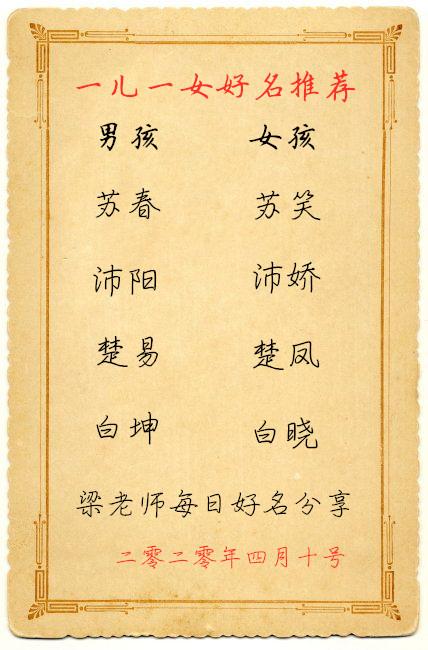 一儿一女好名推荐
男孩 女孩
苏春 苏笑
沛阳 沛娇
楚易 楚凤
白坤 白晓
梁老师每日好名分享
二零二零年四月十号